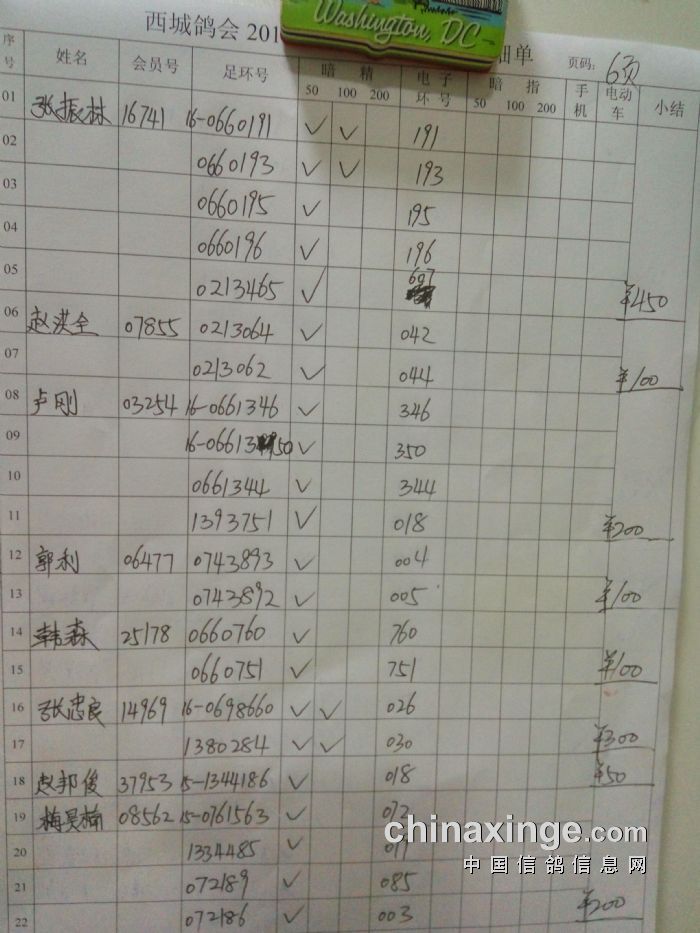 Washington, DC
西城鸽会 201 细单 页码: 6页
序号 姓名 会员号 足环号 暗 精 50 100 200 电子环号 暗 指 50 100 200 手机 电动车 小结
01 张振林 16741 16-0660191 ✓ ✓ 191
02 0660193 ✓ ✓ 193
03 0660195 ✓ 195
04 0660196 ✓ 196
05 0213465 ✓ 607 ¥450
06 赵洪全 07855 0213064 ✓ 042
07 0213062 ✓ 044 ¥100
08 卢刚 03254 16-0661346 ✓ 346
09 16-0661350 ✓ 350
10 0661344 ✓ 344
11 1393751 ✓ 018 ¥200
12 郭利 06477 0743893 ✓ 004
13 0743892 ✓ 005 ¥100
14 韩森 25178 0660760 ✓ 760
15 0660751 ✓ 751 ¥100
16 张忠良 14969 16-0698660 ✓ ✓ 026
17 1380284 ✓ ✓ 030 ¥300
18 赵邦俊 37953 15-1344186 ✓ 018 ¥50
19 梅昊楠 08562 15-0761563 ✓ 072
20 1334485 ✓
21 072189 ✓ 085
22 072186 ✓ 003 ¥200
chinaxinge.com
中国信鸽信息网